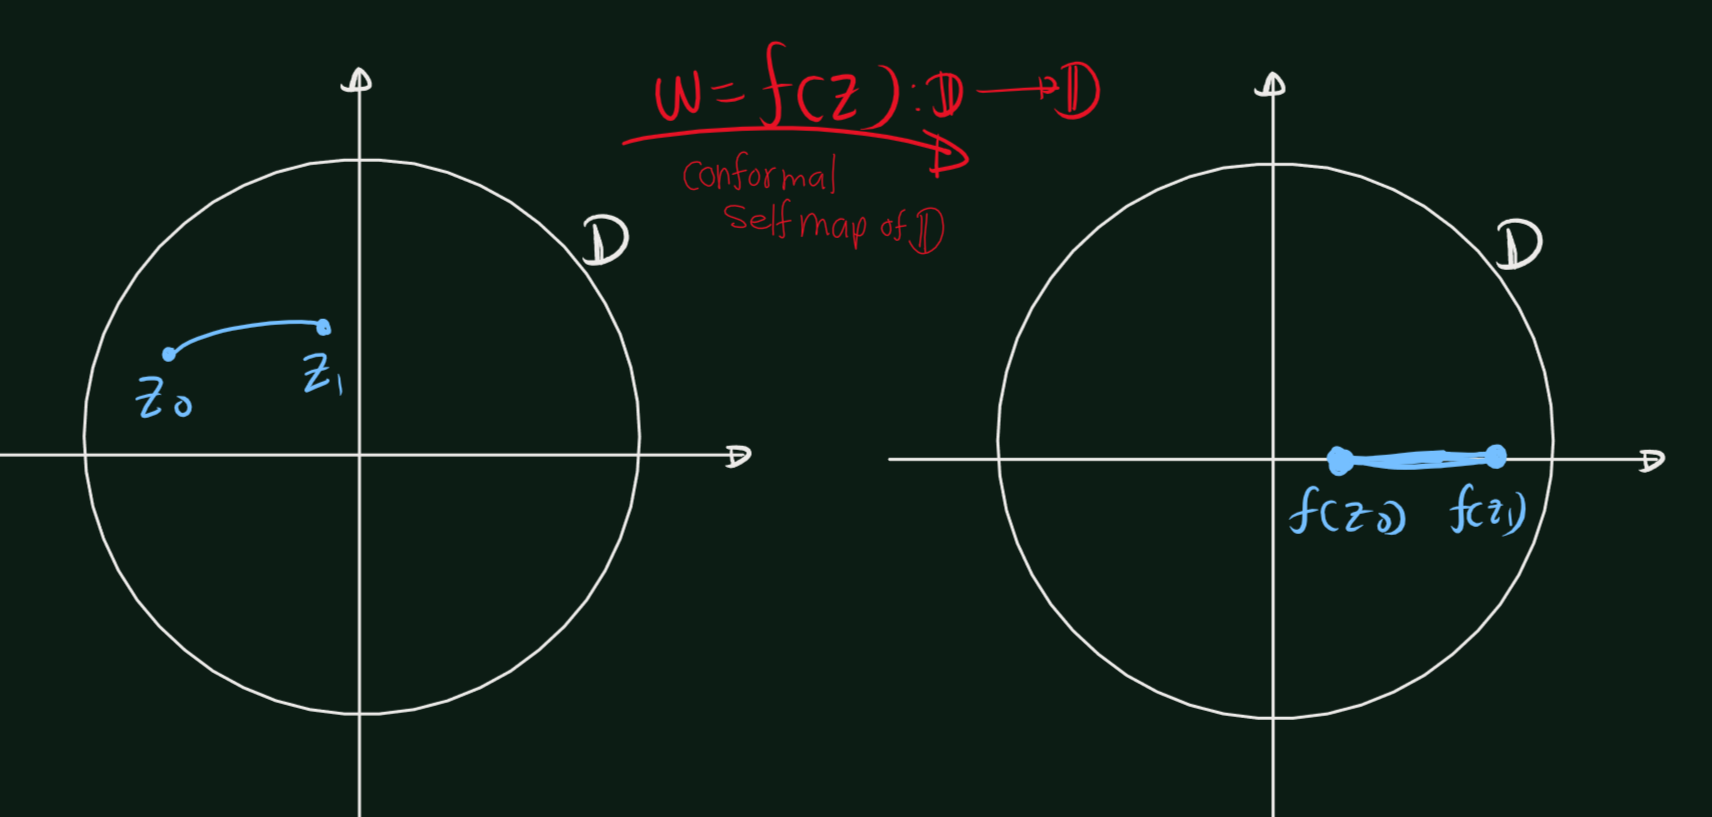 w=f(z):𝔻→𝔻
Conformal
Self map of 𝔻
𝔻
𝔻
z₀
z₁
f(z₀)
f(z₁)